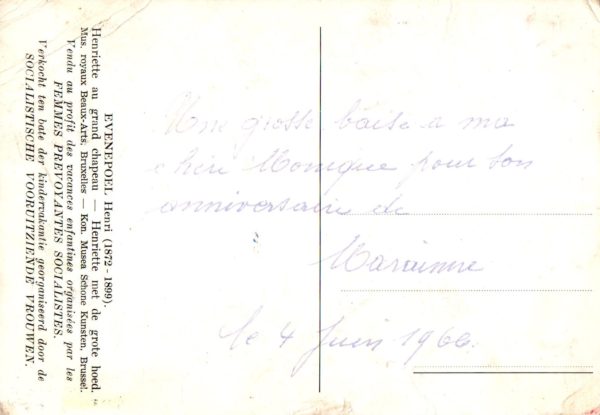 EVENEPOEL Henri (1872-1899).
Henriette au grand chapeau — Henriette met de grote hoed.
Mus. royaux Beaux-Arts, Bruxelles — Kon. Musea Schone Kunsten, Brussel.
Vendu au profit des vacances enfantines organisées par les
FEMMES PREVOYANTES SOCIALISTES.
Verkocht ten bate der kindervakantie georganiseerd door de
SOCIALISTISCHE VOORUITZIENDE VROUWEN.
Une grosse baise a ma
chéri Monique pour ton
anniversaire de
le 4 Juin 1966.